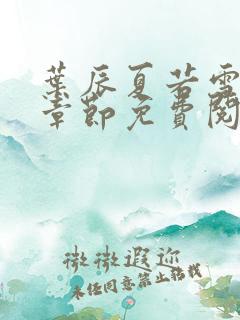 葉辰夏若雪
章節免費閱
微微遐迩
未经同意禁止转载